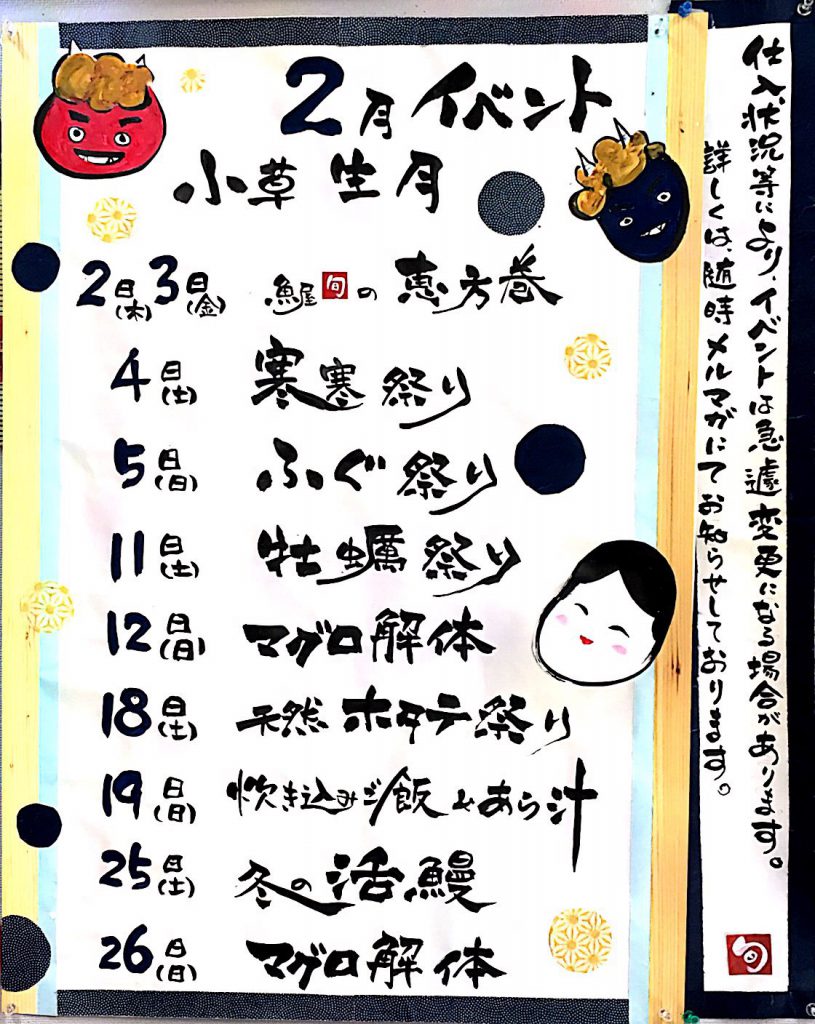 2月イベント
小草生月
2日(木)3日(金) 魚屋旬の恵方巻
4日(土) 寒寒祭り
5日(日) ふぐ祭り
11日(土) 牡蠣祭り
12日(日) マグロ解体
18日(土) 天然ホタテ祭り
19日(日) 炊き込みご飯&あら汁
25日(土) 冬の活鰻
26日(日) マグロ解体
仕入状況等により、イベントは急遽変更になる場合があります。
詳しくは、随時メルマガにてお知らせしております。
旬